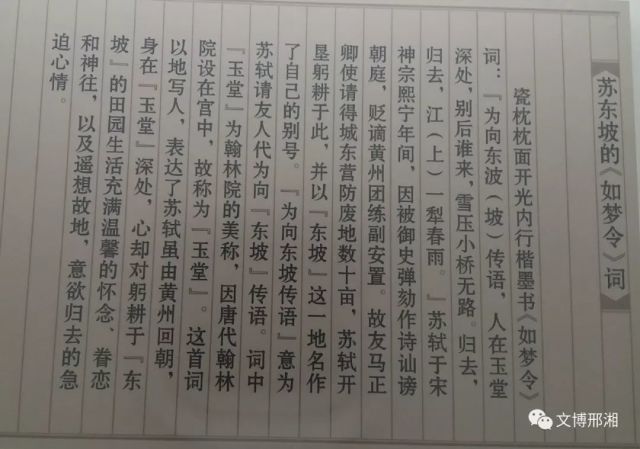 苏东坡的《如梦令》词
瓷枕枕面开光内行楷墨书《如梦令》
词：『为向东波（坡）传语，人在玉堂
深处，别后谁来，雪压小桥无路。归去，
归去，江（上）一犁春雨。』苏轼于宋
神宗熙宁年间，因被御史弹劾作诗讪谤
朝庭，贬谪黄州团练副安置。故友马正
卿使请得城东营防废地数十亩，苏轼开
垦躬耕于此，并以『东坡』这一地名作
了自己的别号。『为向东坡传语』意为
苏轼请友人代为向『东坡』传语。词中
『玉堂』为翰林院的美称，因唐代翰林
院设在宫中，故称为『玉堂』。这首词
以地写人，表达了苏轼虽由黄州回朝，
身在『玉堂』深处，心却对躬耕于『东
坡』的田园生活充满温馨的怀念、眷恋
和神往，以及遥想故地，意欲归去的急
迫心情。
文博邢湘